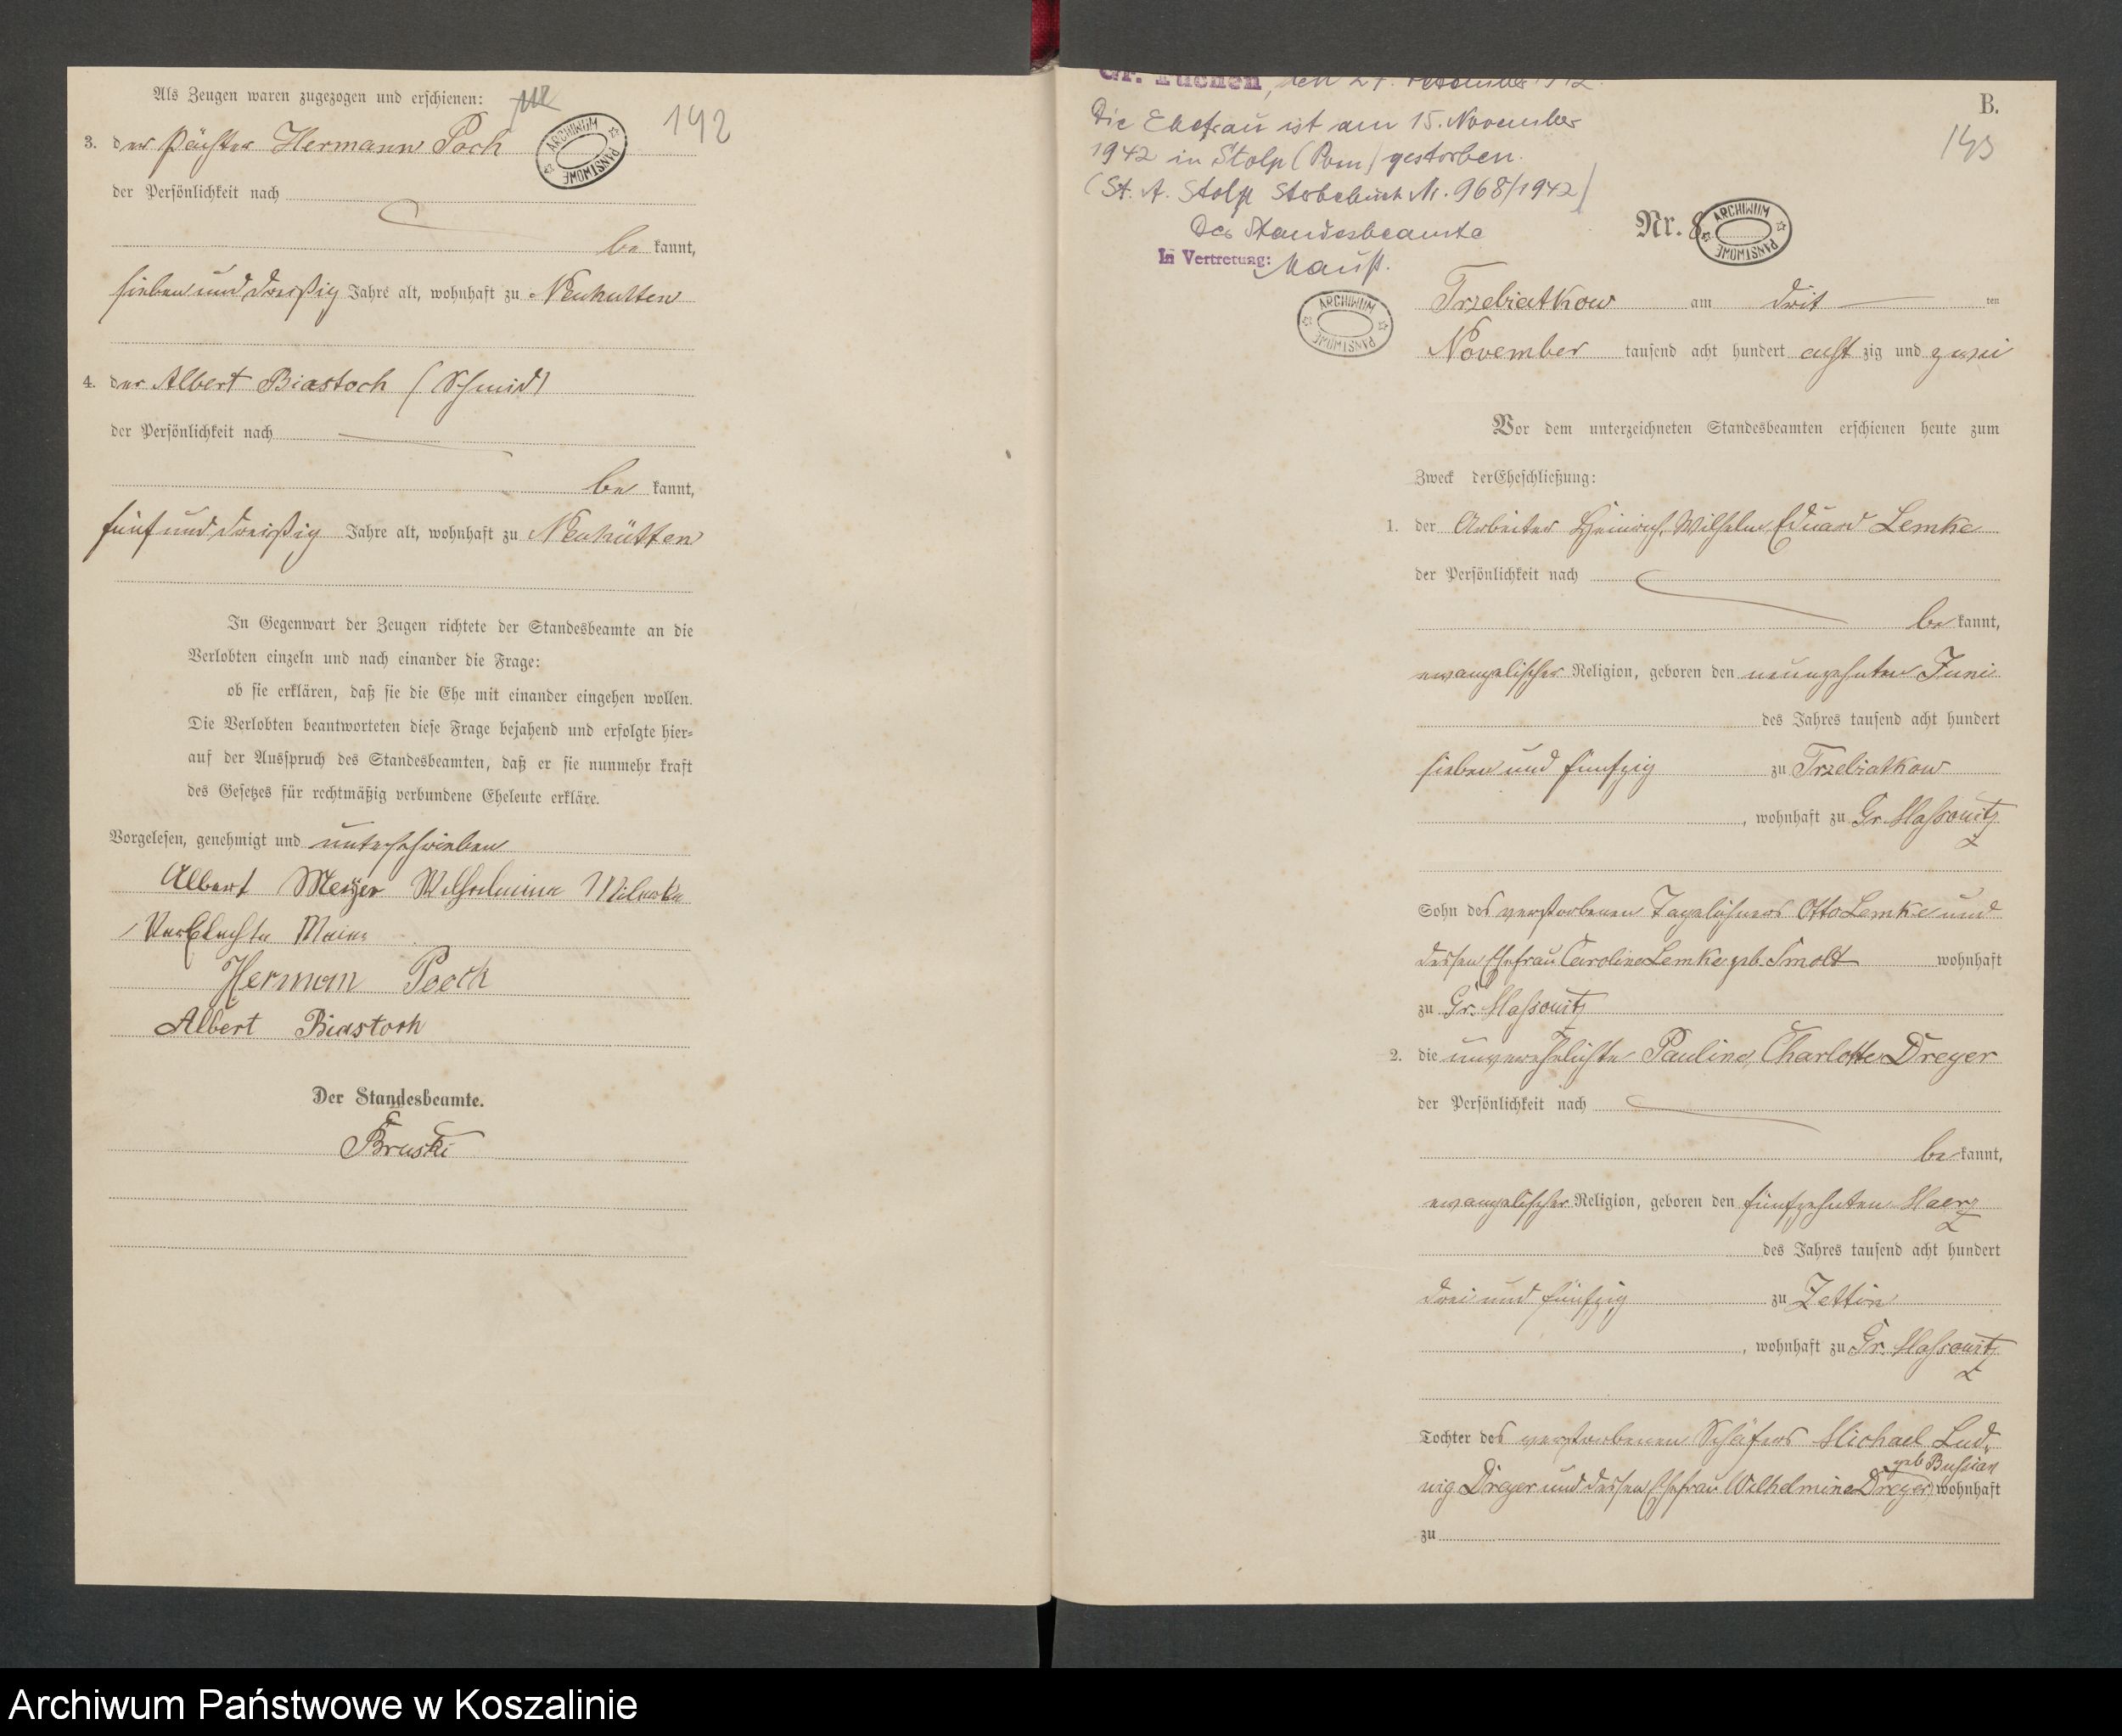 Als Zeugen waren zugezogen und erschienen:
142
3. der Pächter Hermann Poch
ARCHIWUM PAŃSTWOWE
der Persönlichkeit nach
be kannt,
sieben und dreißig Jahre alt, wohnhaft zu Neuhütten
4. der Albert Biastoch (Schmid)
der Persönlichkeit nach
be kannt,
fünf und dreißig Jahre alt, wohnhaft zu Neuhütten
In Gegenwart der Zeugen richtete der Standesbeamte an die
Verlobten einzeln und nach einander die Frage:
ob sie erklären, daß sie die Ehe mit einander eingehen wollen.
Die Verlobten beantworteten diese Frage bejahend und erfolgte hier-
auf der Ausspruch des Standesbeamten, daß er sie nunmehr kraft
des Gesetzes für rechtmäßig verbundene Eheleute erkläre.
Vorgelesen, genehmigt und unterschrieben
Albert Meyer Wilhelmine
Herman Pooch
Albert Biastoch
Der Standesbeamte.
Bruski
Gr. Tuchen, den
Die Ehefrau ist am 15. November
1942 in Stolp (Pom) gestorben.
(St. A. Stolp Sterbebuch Nr. 968/1942)
Der Standesbeamte
In Vertretung:
B.
143
Nr. 8
ARCHIWUM PAŃSTWOWE
ARCHIWUM PAŃSTWOWE
Trzebiatkow am drit ten
November tausend acht hundert acht zig und zwei
Vor dem unterzeichneten Standesbeamten erschienen heute zum
Zweck der Eheschließung:
1. der Arbeiter Heinrich Wilhelm Eduard Lemke
der Persönlichkeit nach
be kannt,
evangelischer Religion, geboren den neunzehnten Juni
des Jahres tausend acht hundert
sieben und fünfzig zu Trzebiatkow
, wohnhaft zu Gr. Massowitz
Sohn des verstorbenen Tagelöhners Otto Lemke und
dessen Ehefrau Caroline Lemke geb. Smolt wohnhaft
zu Gr. Massowitz
2. die unverehelichte Pauline Charlotte Dreyer
der Persönlichkeit nach
be kannt,
evangelischer Religion, geboren den fünfzehnten Maerz
des Jahres tausend acht hundert
drei und fünfzig zu Zettin
, wohnhaft zu Gr. Massowitz
Tochter des verstorbenen Schäfers Michael Lud-
geb Bussian
wig Dreyer und dessen Ehefrau Wilhelmine Dreyer wohnhaft
zu
Archiwum Państwowe w Koszalinie